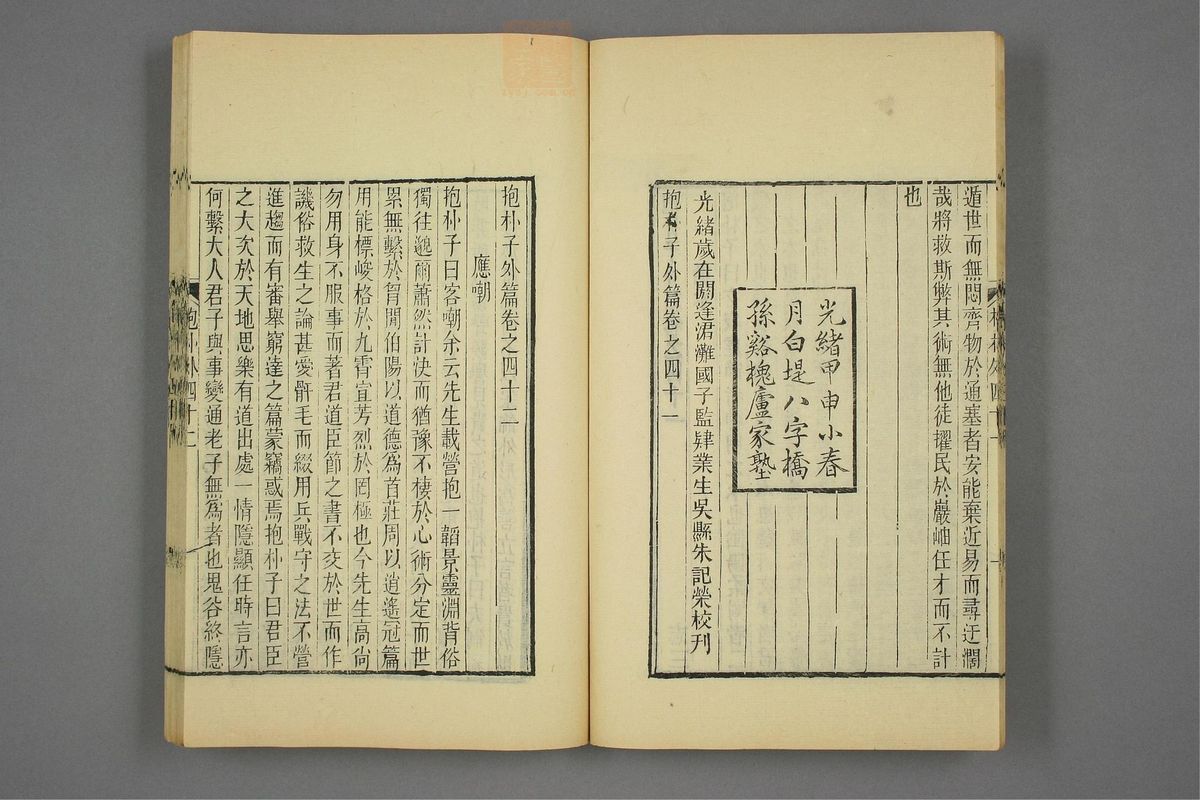 遁世而無悶齊物於通塞者安能棄近易而尋迂闊
哉將救斯弊其術無他徒擢民於巖岫任才而不計
也
光緒甲申小春
月白堤八字橋
孫谿槐廬家塾
光緒歲在閼逢涒灘國子監肄業生吳縣朱記榮校刊
抱朴子外篇卷之四十一
抱朴子外篇卷之四十二
應嘲
抱朴子曰客嘲余云先生載營抱一韜景靈淵背俗
獨往邈爾蕭然計決而猶豫不棲於心術分定而世
累無繫於胷閒伯陽以道德爲首莊周以逍遙冠篇
用能標峻格於九霄宣芳烈於罔極也今先生高尙
勿用身不服事而著君道臣節之書不交於世而作
譏俗救生之論甚愛骭毛而綴用兵戰守之法不營
進趨而有審舉窮達之篇蒙竊惑焉抱朴子曰君臣
之大次於天地思樂有道出處一情隱顯任時言亦
何繫大人君子與事變通老子無爲者也鬼谷終隱
抱朴外四十二